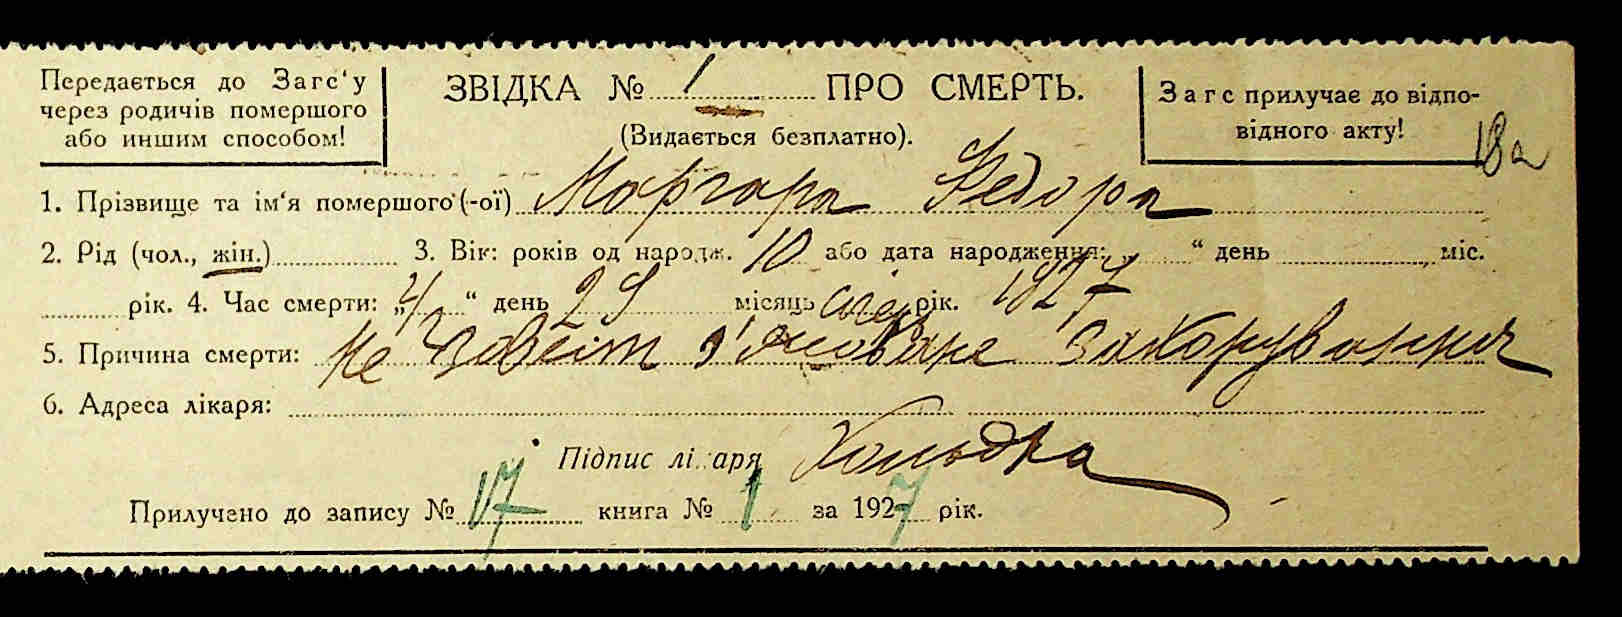 Передається до Загс'у
через родичів помершого
або иншим способом!
ЗВІДКА № 1 ПРО СМЕРТЬ.
(Видається безплатно).
Загс прилучає до відпо-
відного акту!
18а
1. Прізвище та ім'я помершого (-ої) Маргара Федора
2. Рід (чол., жін.) 3. Вік: років од народж. 10 або дата народження: „ “ день міс.
рік. 4. Час смерти: „ “ день 29 місяць рік. 1927
5. Причина смерти: не захорування
6. Адреса лікаря:
Підпис лікаря
Прилучено до запису № 17 книга № 1 за 1927 рік.